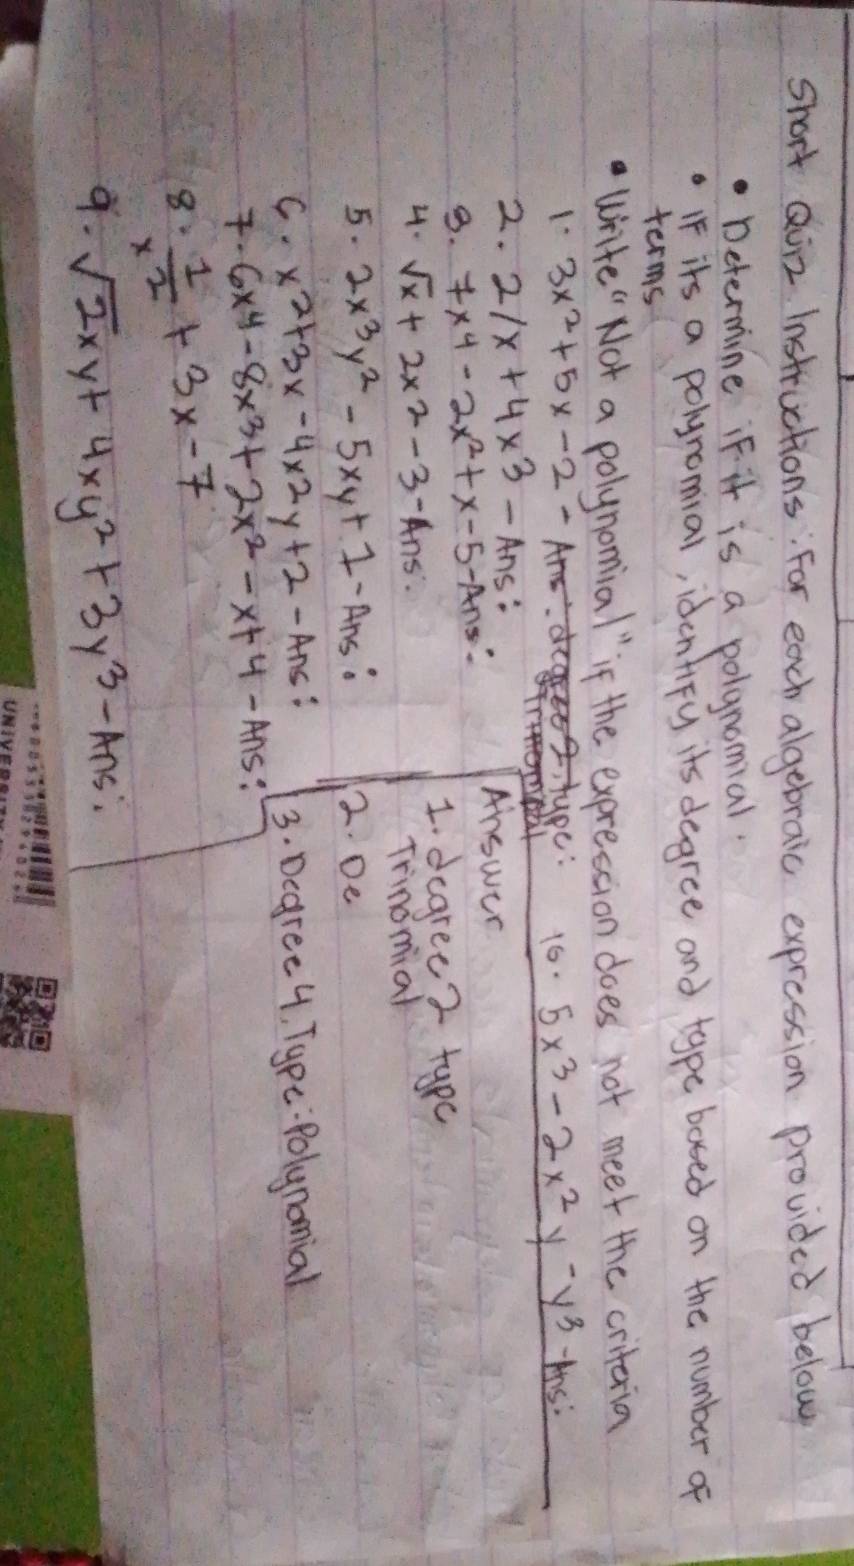 Short Quiz Instructions: For each algebraic expression provided below
• Determine if it is a polynomial.
• IF its a polynomial, identify its degree and type based on the number of
terms
• Write "Not a polynomial" if the expression does not meet the criteria
1. 3x²+5x-2- Ans: degree 2, type:
Trinomial
10. 5x³-2x²y-y³-Ans:
2. 2/x+4x³-Ans:
3. 7x4-2x²+x-5-Ans:
4. √x+2x²-3-Ans.
5. 2x³y²-5xy+1-Ans:
6. x²+3x-4x2y+2-Ans:
7. 6x4-8x³+2x²-x+4-Ans:
8. 1/x2+3x-7
9. √2xy+4xy²+3y³-Ans:
Answer
1. degree 2 type
Trinomial
2. De
3. Degree 4, Type: Polynomial
UNIVERSITY